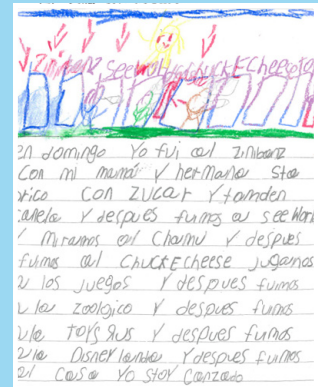 Zinibonz seeworld chuckEcheese
en domingo Yo fui al Zinibonz
Con mi mamá Y hermana Sta
rico con ZUCar Y tamden
canela Y despues fuimos a see Worl
Y Miramos al Chamu Y despues
fuimos al ChuckECheese jugamos
a los juegos Y despues fuimos
a la zoologico Y despues fuimos
a la toys Rus Y despues fuimos
a la Disney landia Y despues fuimos
al Casa Yo stoy Canzado